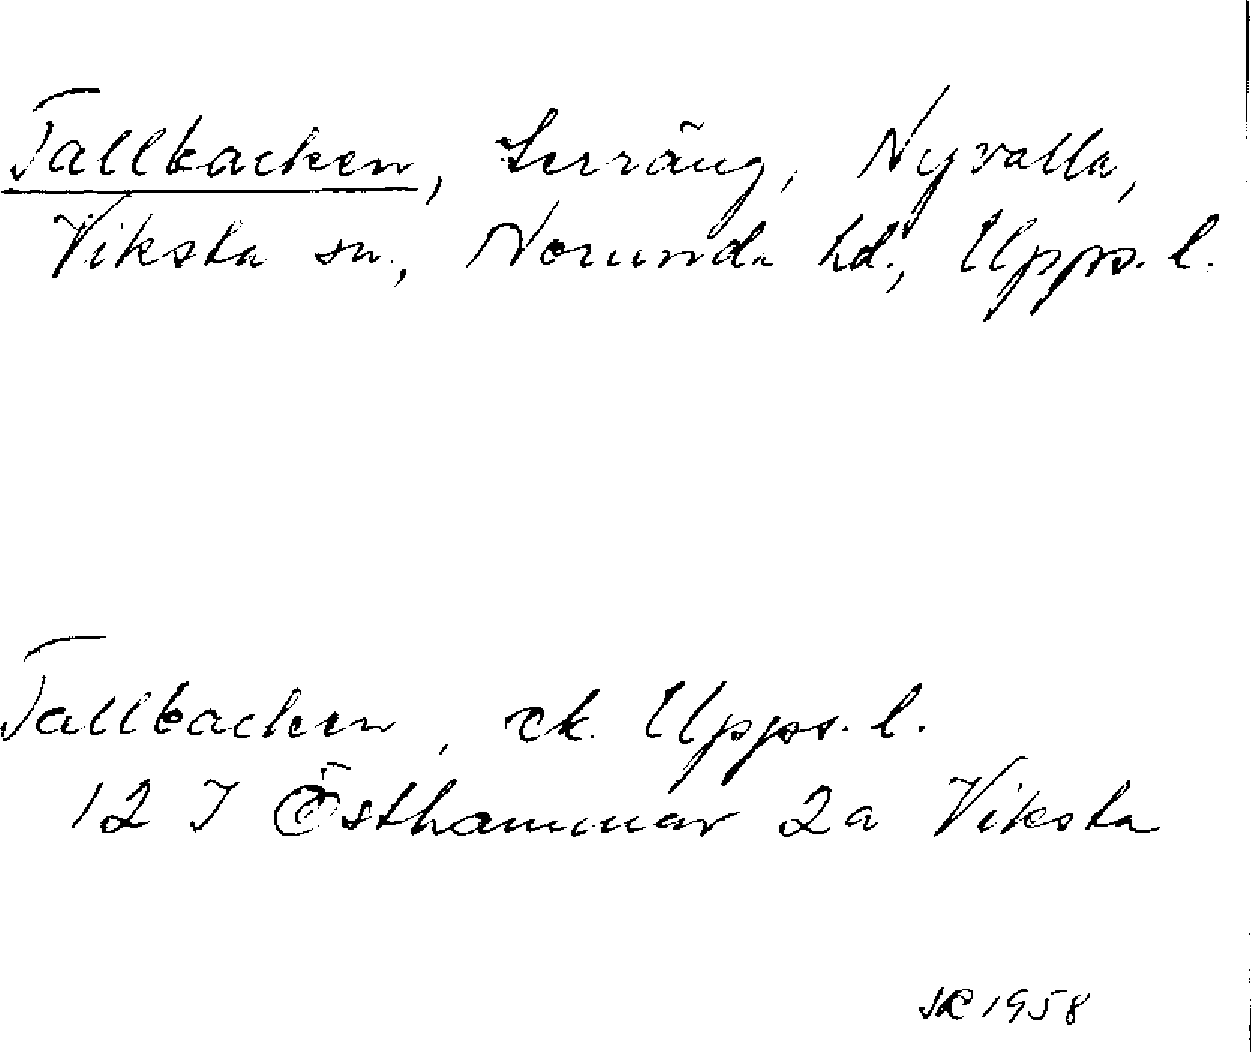 Tallbacken, Lerräng, Nyvalla,
Viksta sn., Norunda hd., Upps. l.
Tallbacken, ek. Upps. l.
12 I Östhammar 2a Viksta
1958